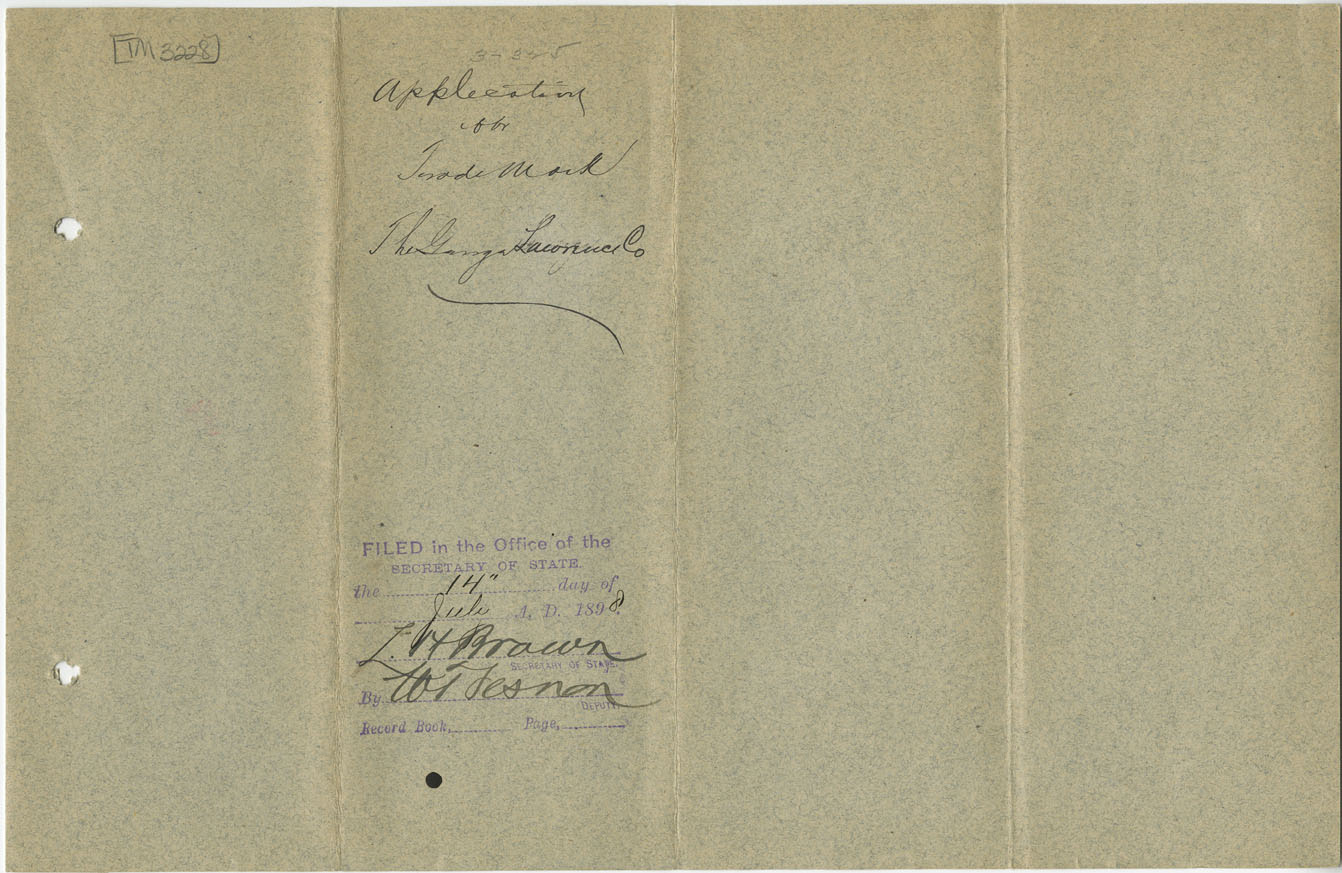 [TM 3228]
3-325
Application
for
Trade Mark
The Lawrence Co
FILED in the Office of the
SECRETARY OF STATE.
the 14" day of
July A. D. 1898.
L. H Brown
SECRETARY OF STATE.
By
DEPUTY.
Record Book, Page,